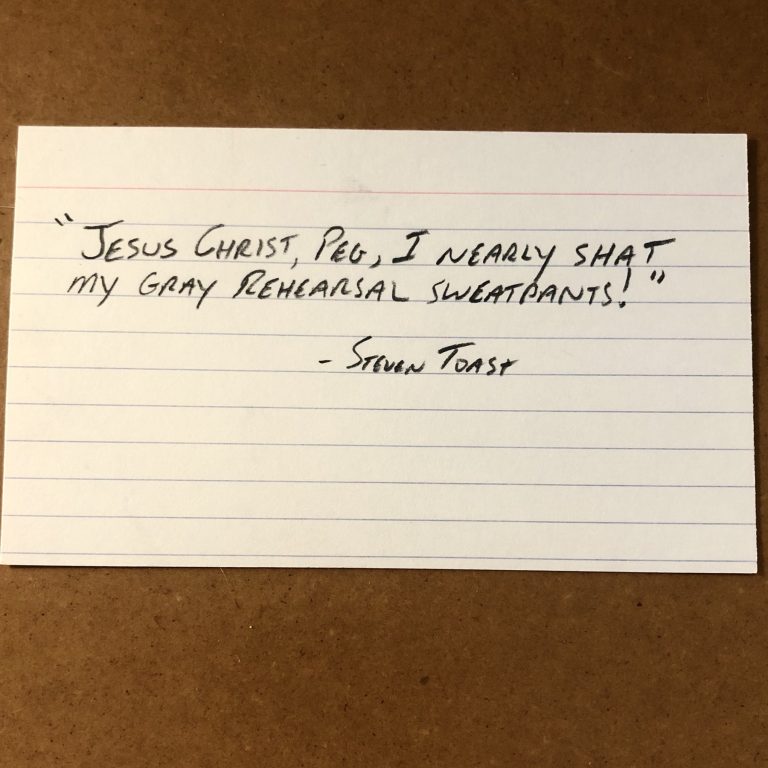 "JESUS CHRIST, PEG, I NEARLY SHAT
MY GRAY REHEARSAL SWEATPANTS!"
- STEVEN TOAST